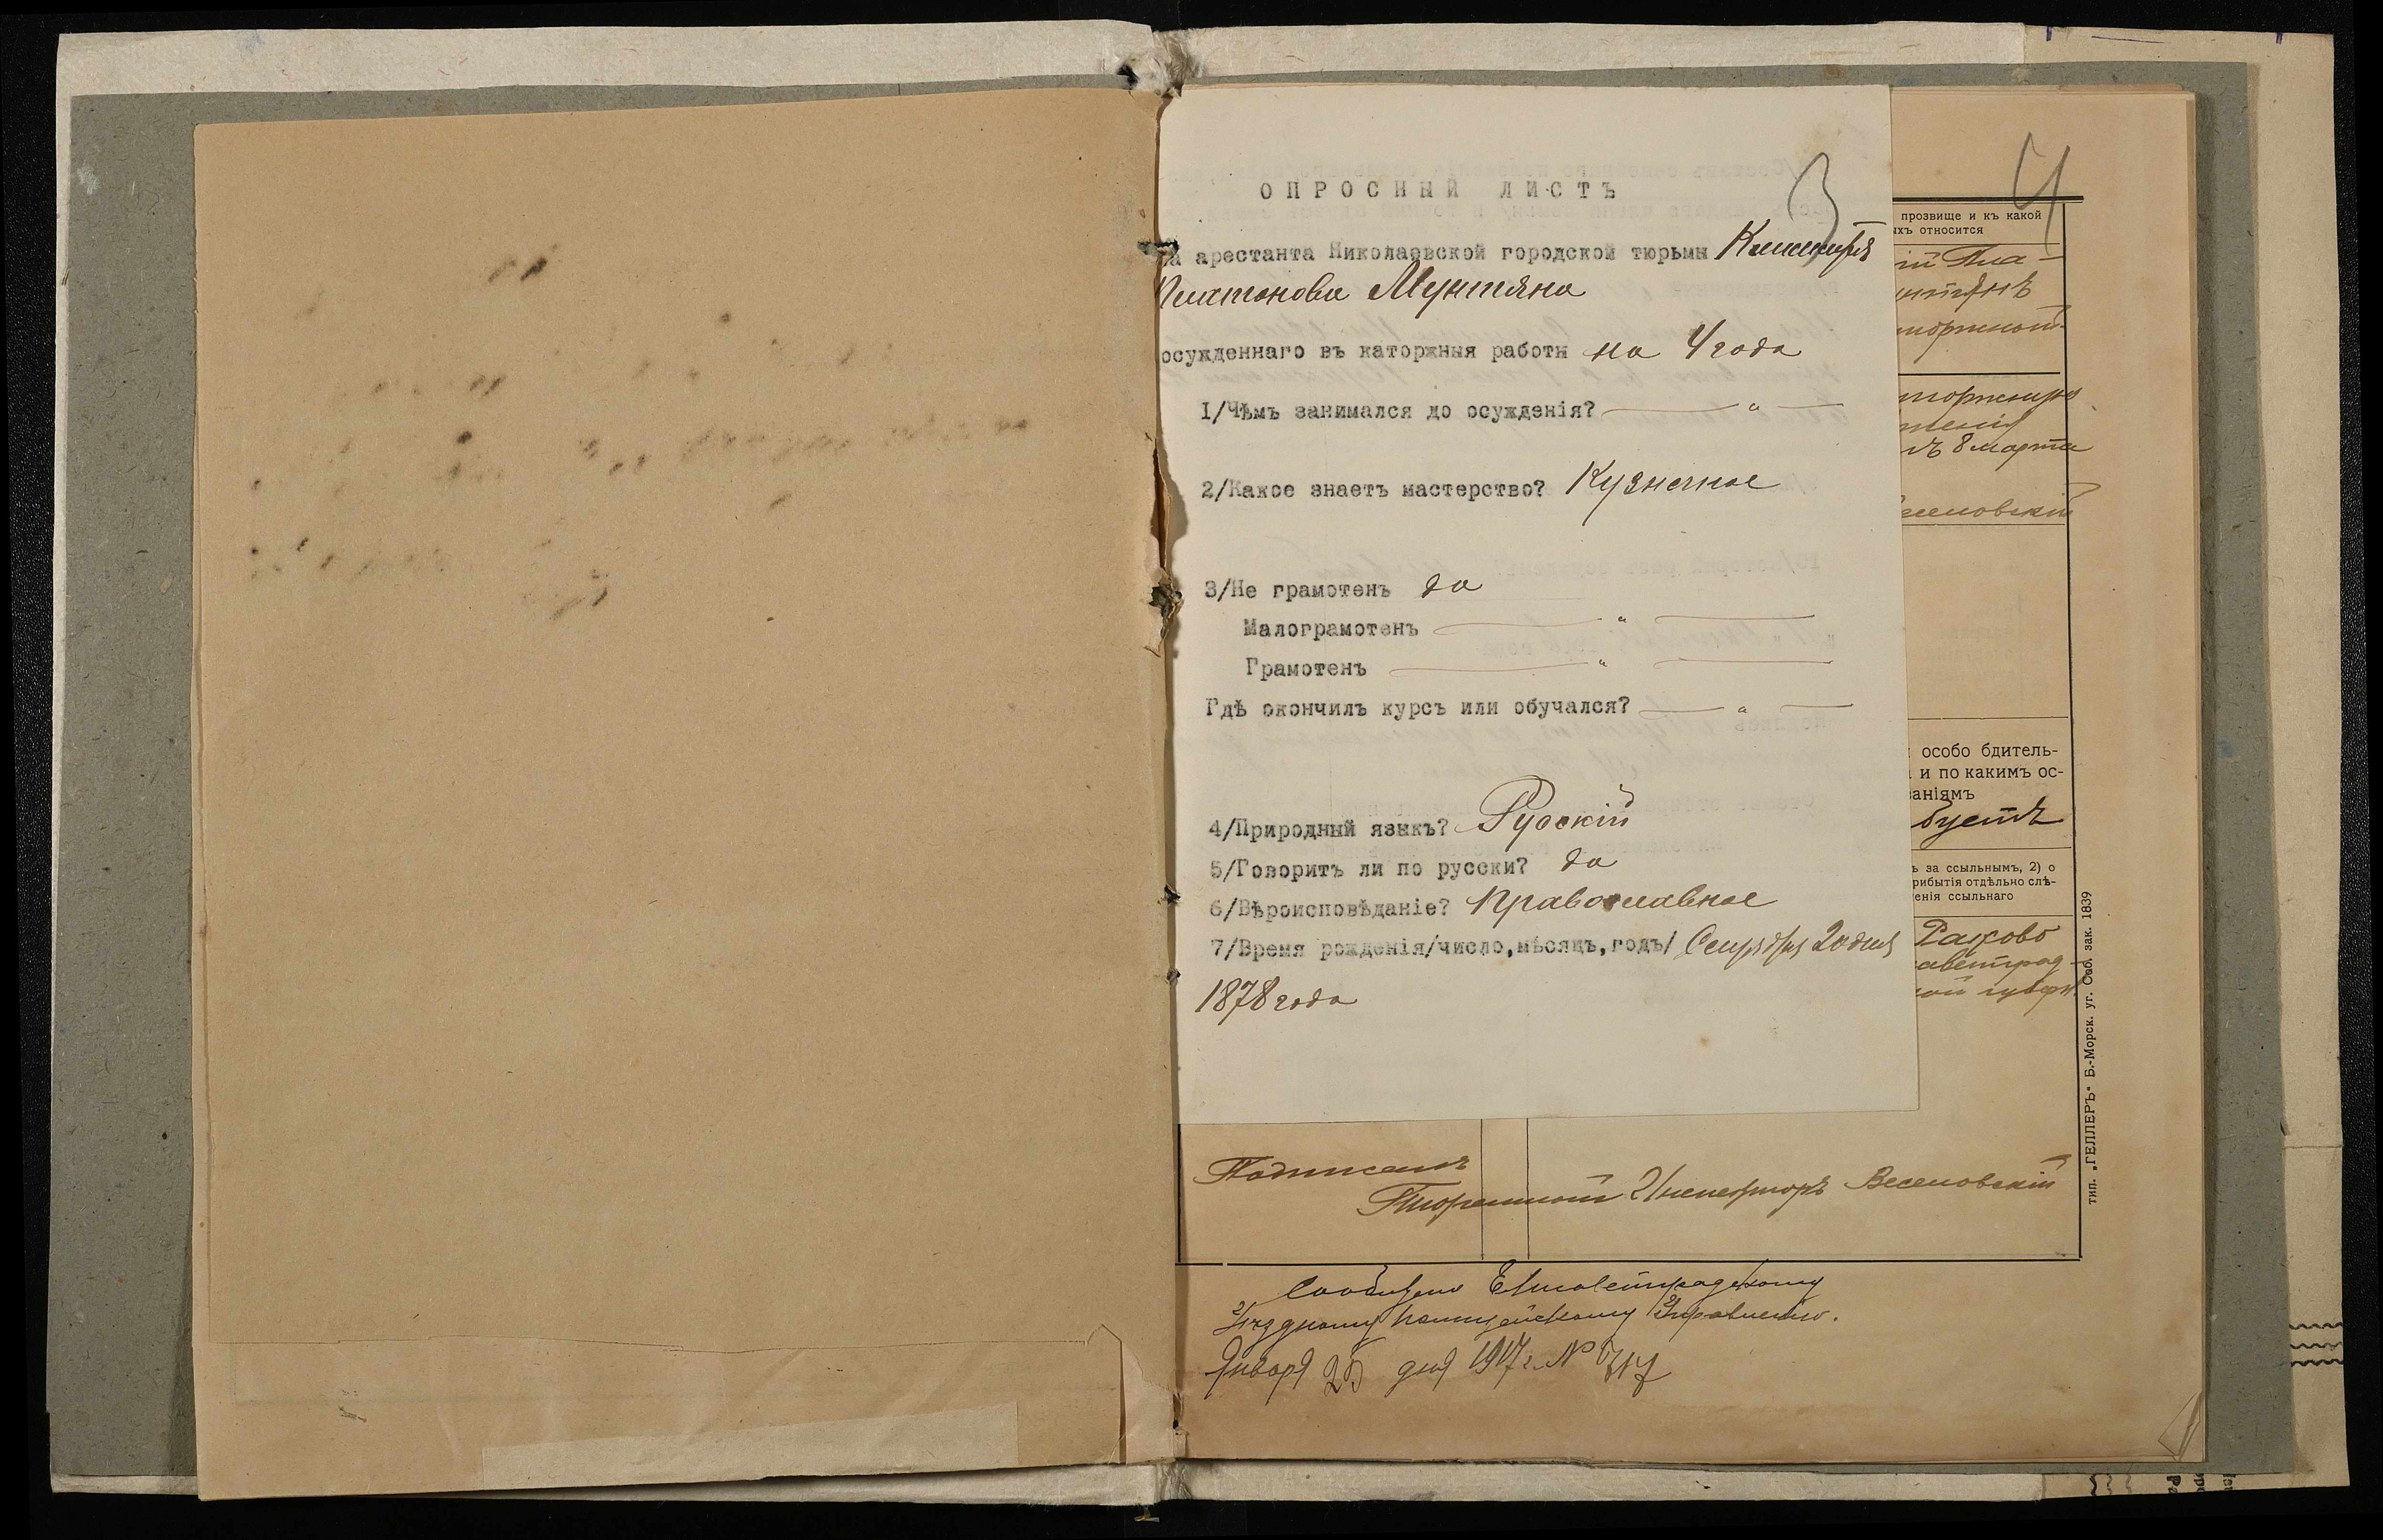 3
4
ОПРОСНЫЙ ЛИСТЪ
На арестанта Николаевской городской тюрьмы
Платонова Мунтяна
осужденнаго въ каторжныя работы на 4 года
1/Чѣмъ занимался до осужденія? — " —
2/Какое знаетъ мастерство? Кузнечное
3/Не грамотенъ да
Малограмотенъ — " —
Грамотенъ — " —
Гдѣ окончилъ курсъ или обучался? — " —
4/Природный языкъ? Русскій
5/Говоритъ ли по русски? да
6/Вѣроисповѣданіе? Православное
7/Время рожденія/число,мѣсяцъ,годъ/ 20 дня
1878 года
прозвище и къ какой
ыхъ относится
ій Пла-
унтянъ
8 марта
еселовскій
особо бдитель-
и по какимъ ос-
ваніямъ
ъ за ссыльнымъ, 2) о
рибытія отдѣльно слѣ-
енія ссыльнаго
аветград-
кой губерн.
тип. „ГЕЛЛЕРЪ" Б.-Морск. уг. Соб. зак. 1839
Подписалъ
Тюремный Инспекторъ Веселовскій
Сообщено Елисаветградскому
Уѣздному Полицейскому Управленію.
Января 25 дня 1917 г. № 717